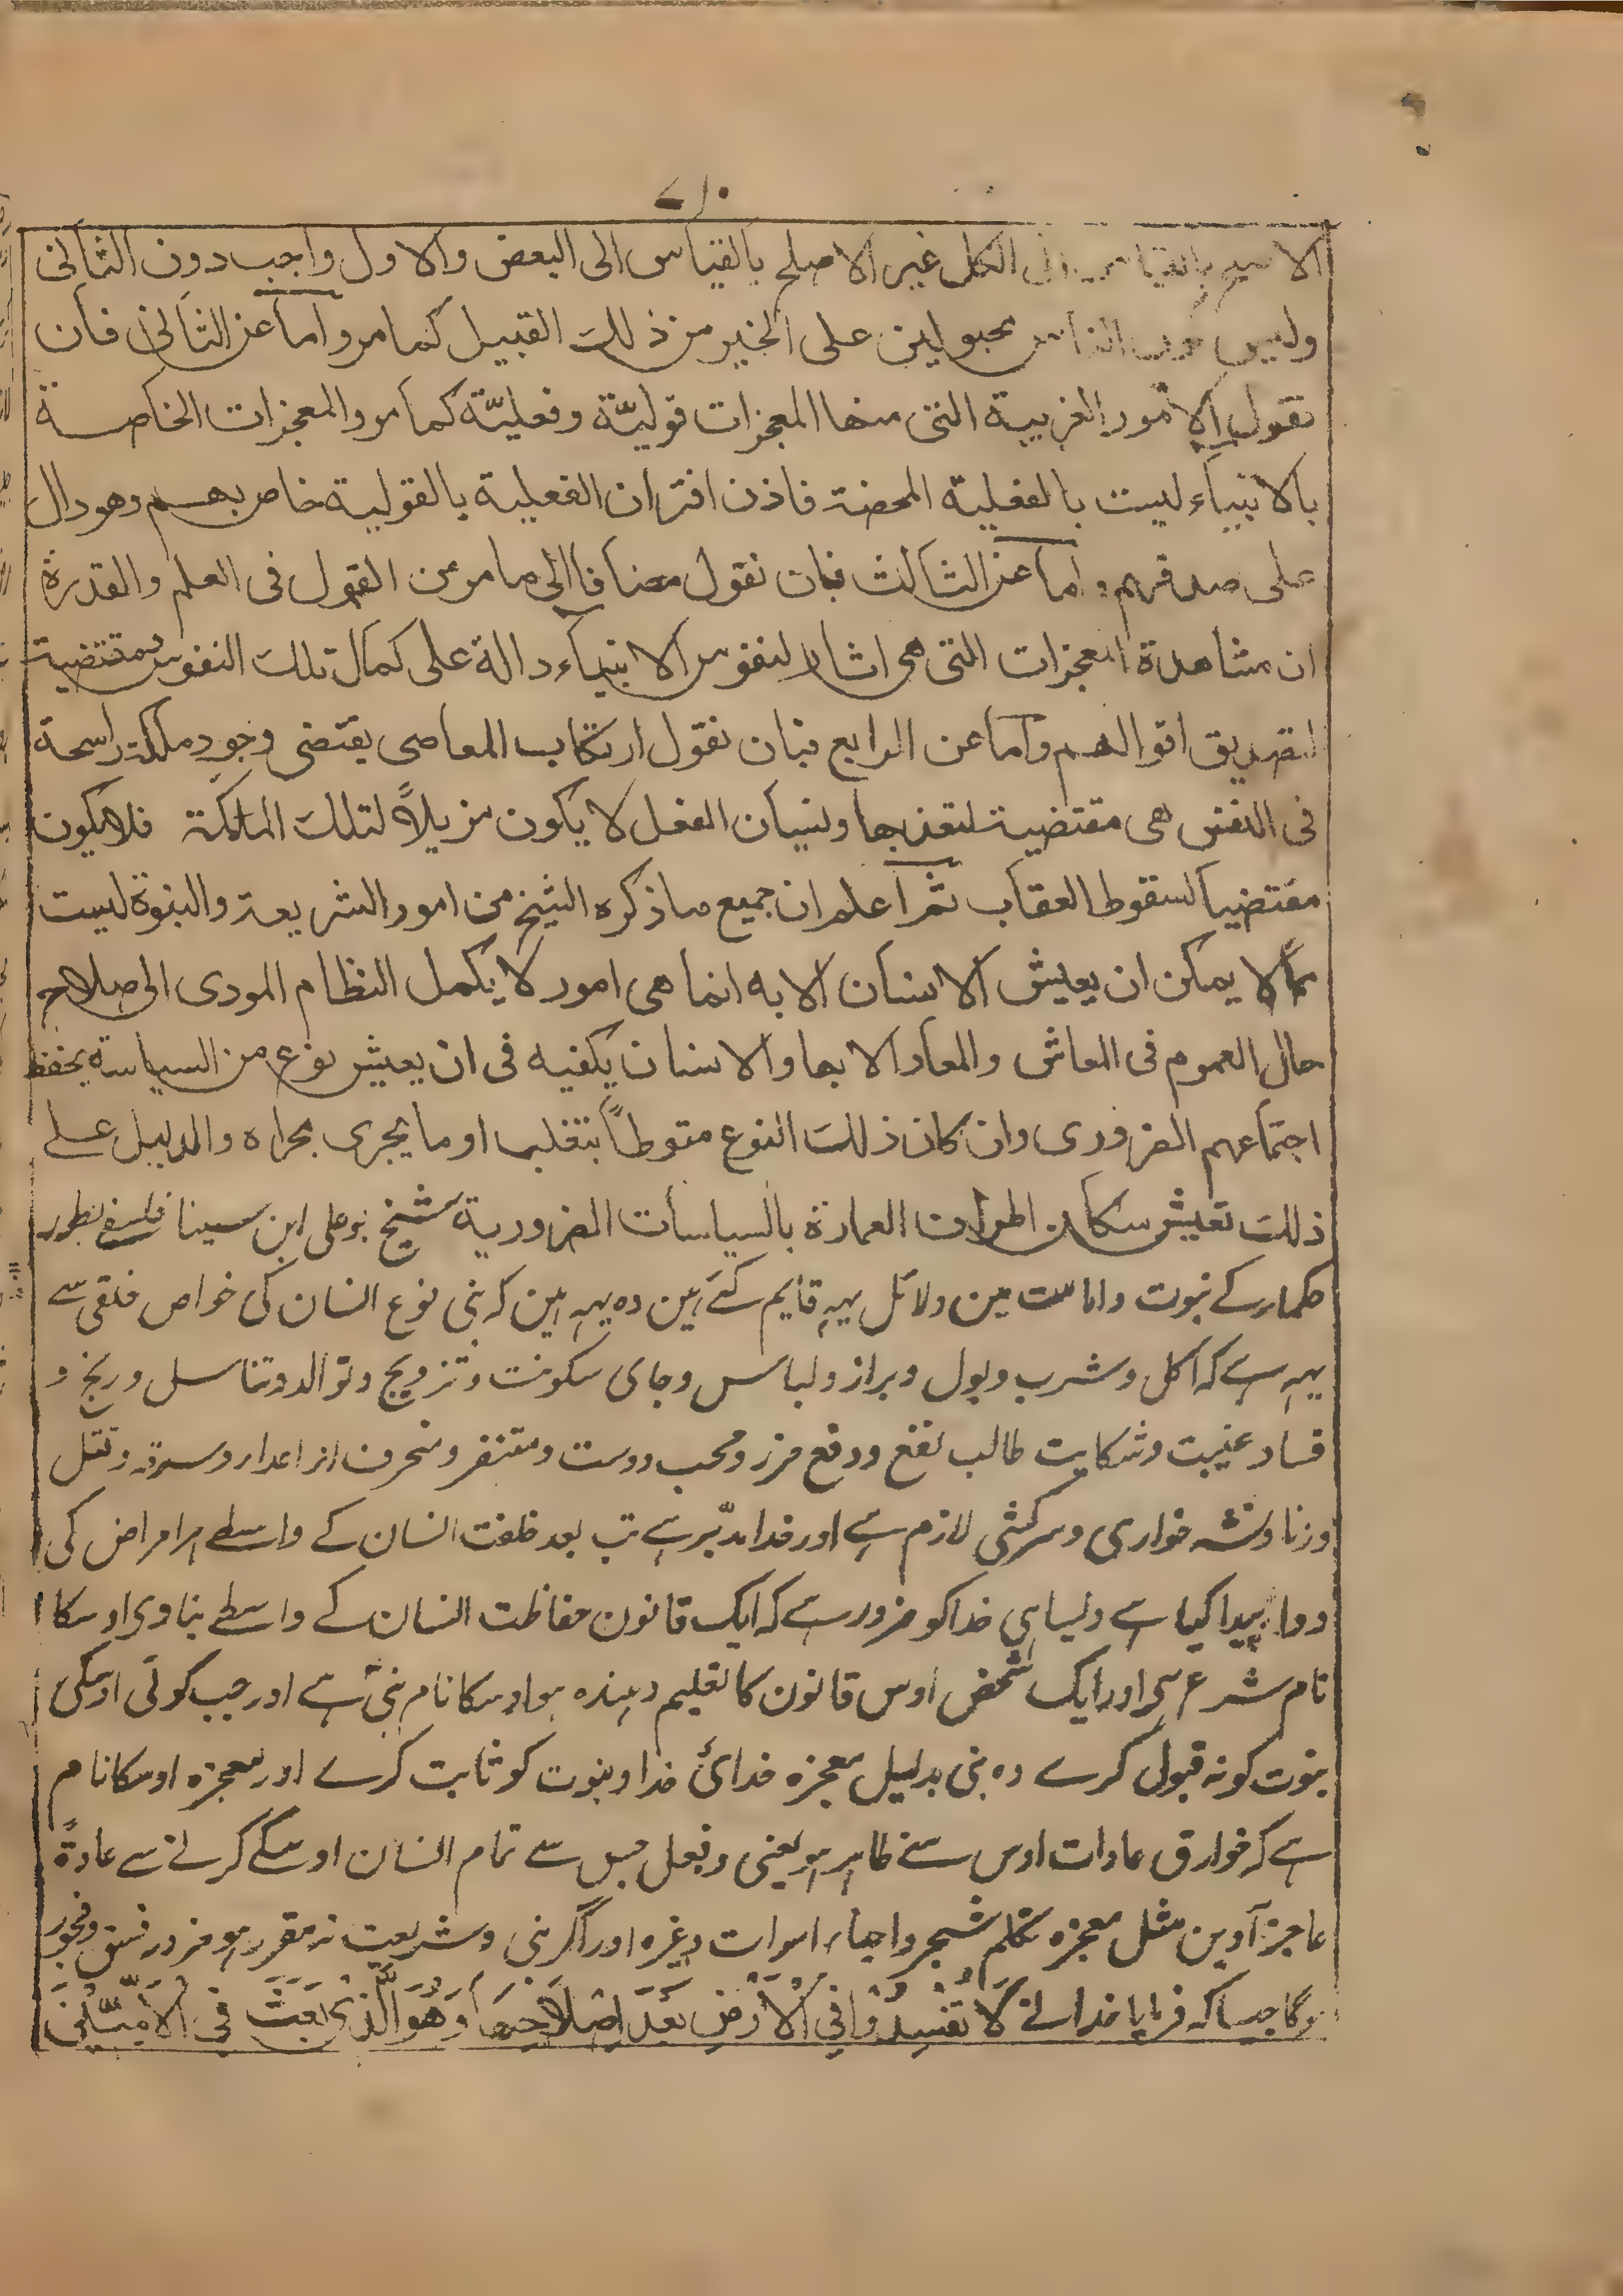 ۷۱۰
الاصلح بالقياس الى الكل غير الاصلح بالقياس الى البعض والاول واجب دون الثانى
وليس كون الناس مجبولين على الخير من ذلك القبيل كما مر واما عن الثانى فان
نقول الامور الغريبة التى منها المعجزات قوليّة وفعليّة كما مر والمعجزات الخاصة
بالانبياء ليست بالفعلية المحضة فاذن اقتران الفعلية بالقولية خاص بهم وهو دال
على صدقهم واما عن الثالث فبان نقول مضافا الى ما مر من القول فى العلم والقدرة
ان مشاهدة المعجزات التى هى اثار لنفوس الانبياء دالة على كمال تلك النفوس مقتضية
لتصديق اقوالهم واما عن الرابع فبان نقول ارتكاب المعاصى يقتضى وجود ملكة راسخة
فى النفس هى مقتضية لتعذبها ونسيان الفعل لا يكون مزيلاً لتلك الملكة فلا يكون
مقتضيا لسقوط العقاب ثم اعلم ان جميع ما ذكره الشيخ من امور الشريعة والنبوة ليست
مما لا يمكن ان يعيش الانسان الا به انما هى امور لا يكمل النظام المودى الى صلاح
حال العموم فى المعاش والمعاد الا بها والانسان يكفيه فى ان يعيش نوع من السياسة يحفظ
اجتماعهم الضرورى وان كان ذلك النوع منوطاً بتغلب او ما يجرى مجراه والدليل على
ذلك تعيش سكان اطراف العمارة بالسياسات الضرورية شیخ بوعلی ابن سینا فلسفی بطور
حکمار کے نبوت وامامت مین دلائل یہہ قایم کئے ہین وہ یہہ ہین کہ بنی نوع انسان کی خواص خلقی سے
یہہ ہے کہ اکل وشرب وبول وبراز ولباس وجای سکونت وتزویج وتوالد وتناسل ورنج و
فساد غیبت وشکایت طالب نفع ودفع ضرر ومحب دوست ومتنفر ومنحرف از اعدار وسرقہ وقتل
وزنا ونشہ خواری وسرکشی لازم ہے اور خدا مدبّر ہے تب بعد خلقت انسان کے واسطے ہر امراض کی
دوا پیدا کیا ہے ولیسا ہی خدا کو ضرور ہے کہ ایک قانون حفاظت انسان کے واسطے بنا وی اوسکا
نام شرع ہی اور ایک شخص اوس قانون کا تعلیم دہندہ ہو اوسکا نام نبی ہے اور جب کوئی اوسکی
نبوت کو نہ قبول کرے وہ نبی بدلیل معجزہ خدائی خدا ونبوت کو ثابت کرے اور معجزہ اوسکا نام
ہے کہ خوارق عادات اوس سے ظاہر ہو یعنی وہ فعل جس سے تمام انسان اوسکے کرنے سے عادةً
عاجز آوین مثل معجزہ تکلم شجر واحیاء اموات وغیرہ اور اگر نبی وشریعت نہ مقرر ہو ضرور فسق وفجور
ہوگا جیسا کہ فرمایا خدا نے لَا تُفْسِدُوْا فِي الْاَرْضِ بَعْدَ اِصْلَاحِهَا وَهُوَ الَّذِىْ بَعَثَ فِى الْاُمِّيّٖنَ